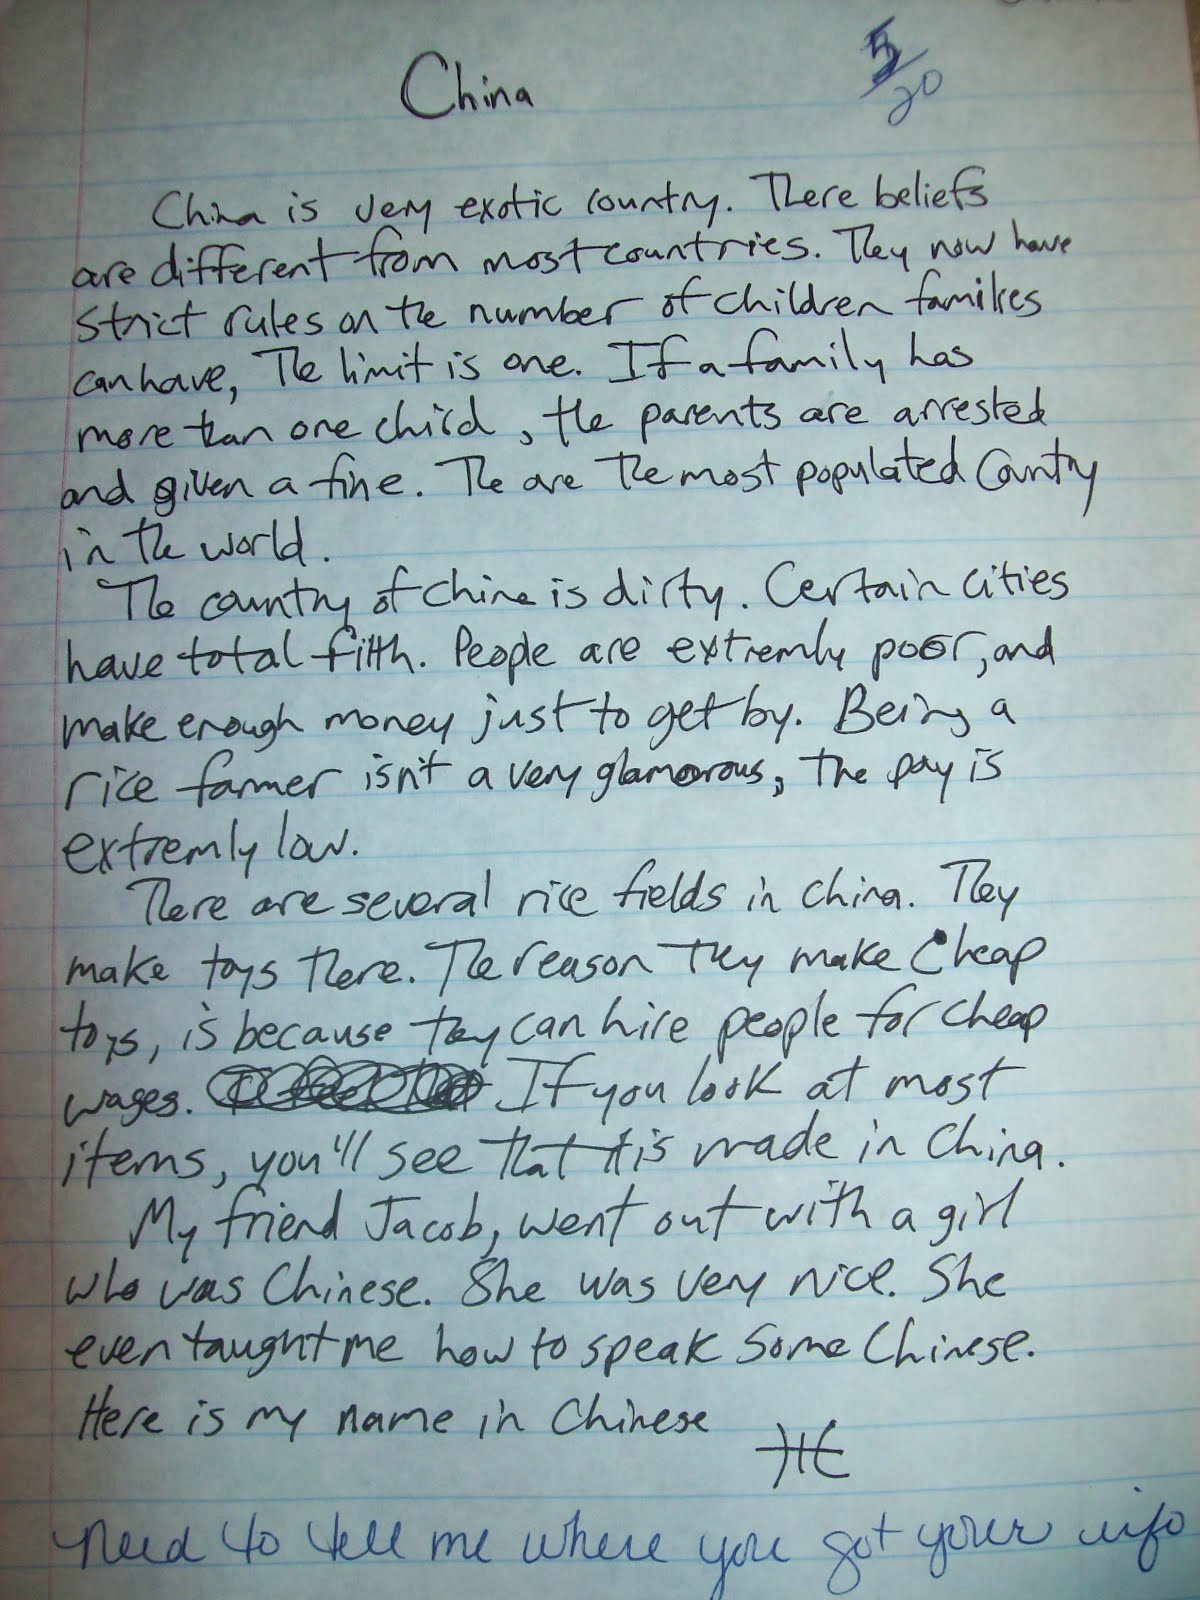 China
5/20
China is very exotic country. There beliefs
are different from most countries. They now have
strict rules on the number of children families
can have, The limit is one. If a family has
more than one child, the parents are arrested
and given a fine. The are the most populated County
in the world.
The country of China is dirty. Certain cities
have total filth. People are extremly poor, and
make enough money just to get by. Being a
rice farmer isn't a very glamorous, the pay is
extremly low.
There are several rice fields in China. They
make toys there. The reason they make cheap
toys, is because they can hire people for cheap
wages. If you look at most
items, you'll see that it is made in China.
My friend Jacob, went out with a girl
who was Chinese. She was very nice. She
even taught me how to speak some Chinese.
Here is my name in Chinese
need to tell me where you got your info